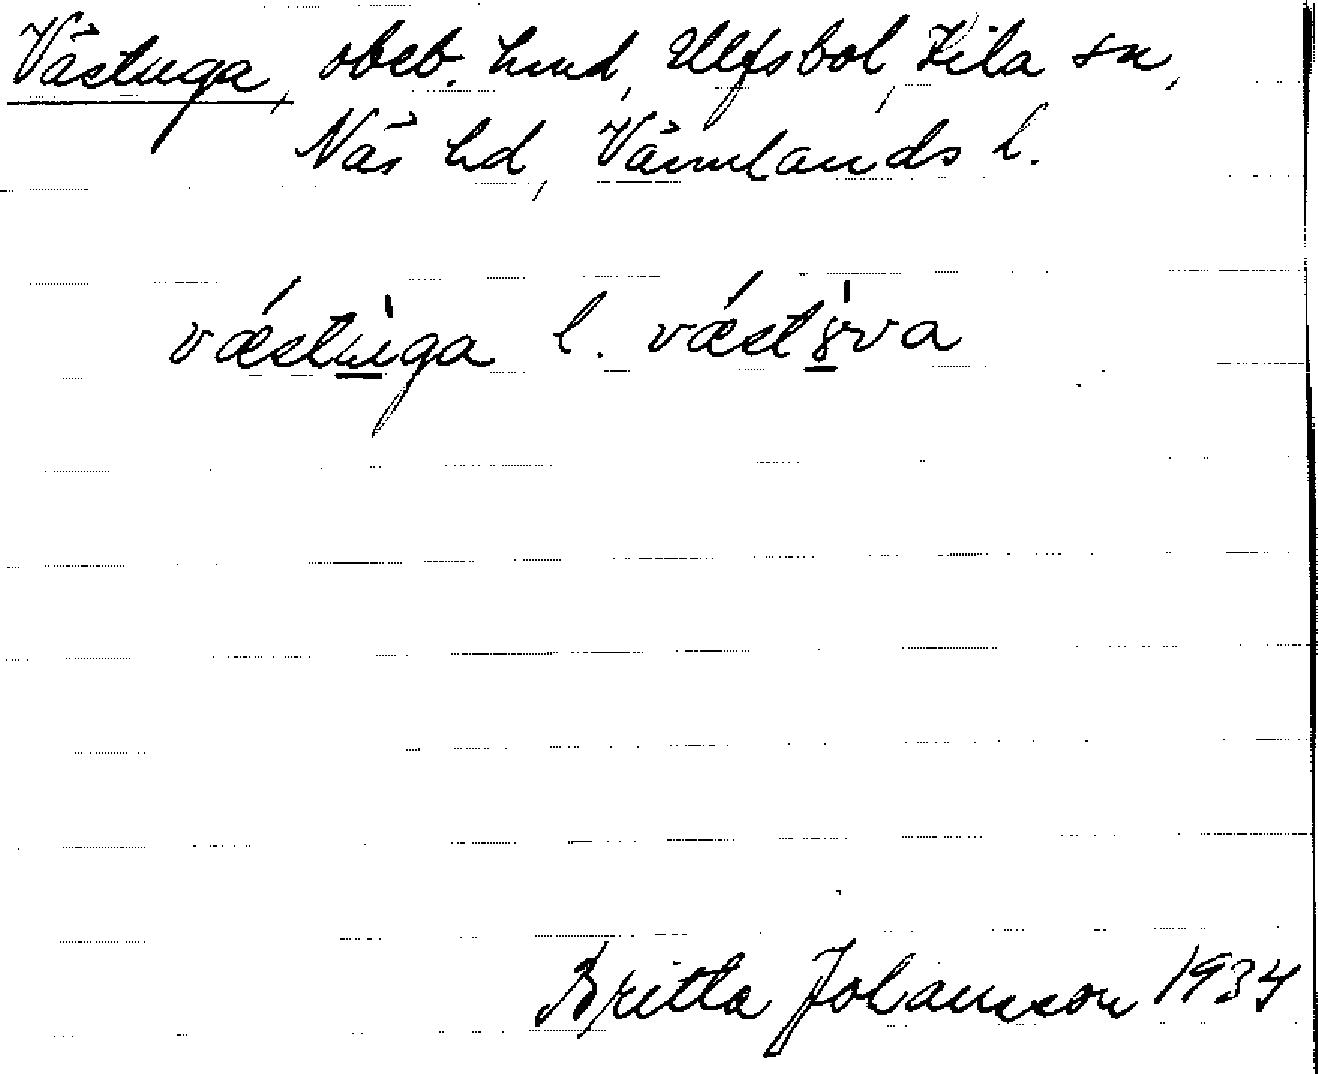 Västuga, obeb. hmd, Ulfsbol, Kila sn,
Näs hd, Värmlands l.
vǽstu̱̍ga l. vǽst8̱̍va
Britta Johansson 1934